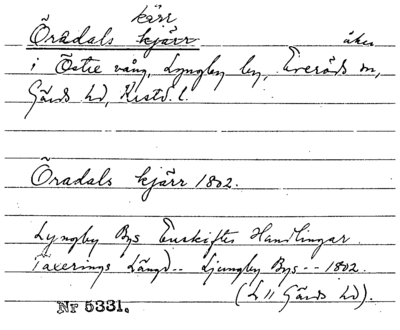 kärr
Öradals kjärr åker
i Östre vång, Lyngby by, Everöds sn,
Gärds hd, Kristd. l.
Öradals kjärr 1802.
Lyngby Bys Enskiftes Handlingar.
Taxerings Längd -- Ljungby Bys -- 1802.
(L 11 Gärds hd).
Nr 5331.